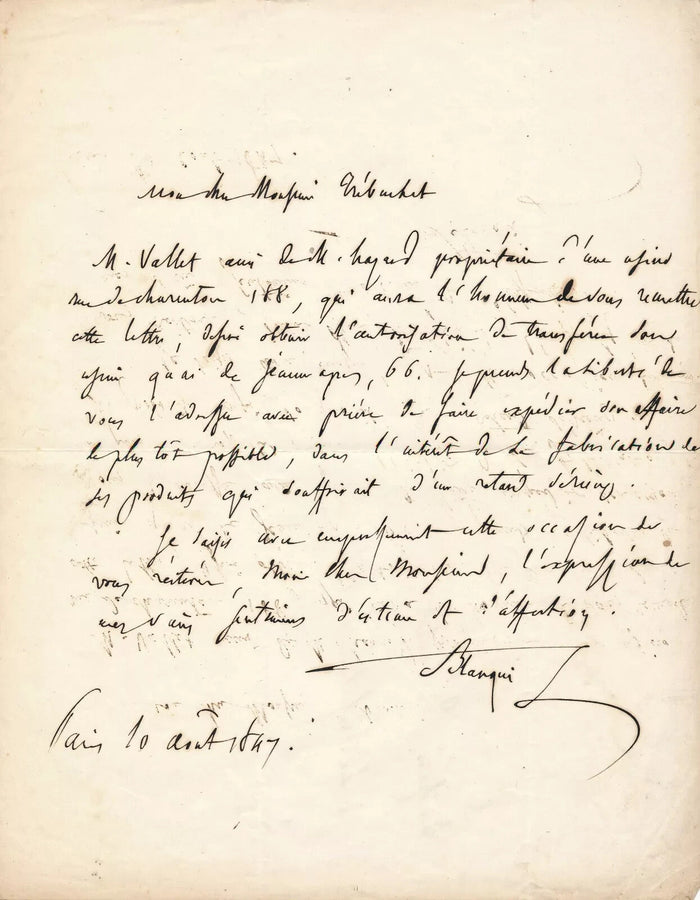 Mon cher Monsieur Trébuchet
M. Vallet ami de M. hazard propriétaire d'une usine
rue de charenton 188, qui aura l'honneur de vous remettre
cette lettre, désire obtenir l'autorisation de transférer son
usine quai de Jemmapes, 66. Je prends la liberté de
vous l'adresser avec prière de faire expédier son affaire
le plus tôt possible, dans l'intérêt de la fabrication de
ses produits qui souffrirait d'un retard sérieux.
Je saisis avec empressement cette occasion de
vous réitérer, Mon cher Monsieur, l'expression de
mes vrais sentimens d'estime et d'affection.
Blanqui
Paris 10 août 1847.